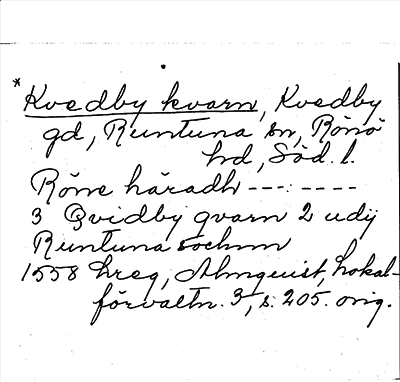 * Kvedby kvarn, Kvedby
gd, Runtuna sn, Rönö
hd, Söd. l.
Röne häradh --- : ----
3 Qvidby qvarn 2 udij
Runtuna sochnn
1558 hreg, Almquist, Lokal-
förvaltn. 3, s. 205. orig.